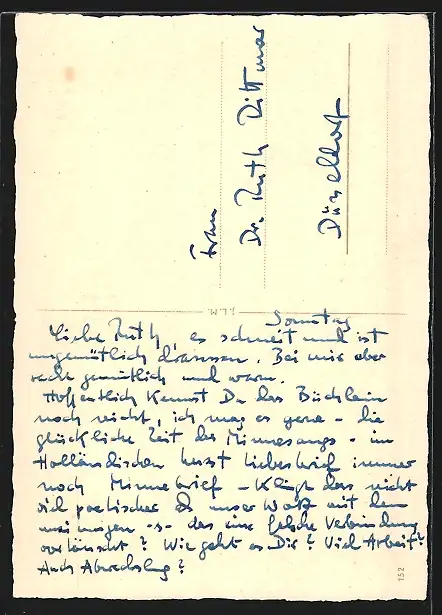 Frau
Dr. Ruth Dittmar
Düsseldorf
W 71
Sonntag
Liebe Ruth, es schneit und ist
ungemütlich draussen. Bei mir aber
recht gemütlich und warm.
Hoffentlich kennst Du das Büchlein
noch nicht, ich mag es gern - die
glückliche Zeit des Minnesangs - im
Holländischen heisst Liebesbrief immer
noch Minnebrief - Klingt das nicht
viel poetischer als unser Wort mit dem
das eine falsche Verbindung
? Wie geht es Dir? Viel Arbeit?
Auch Abwechslung?
152